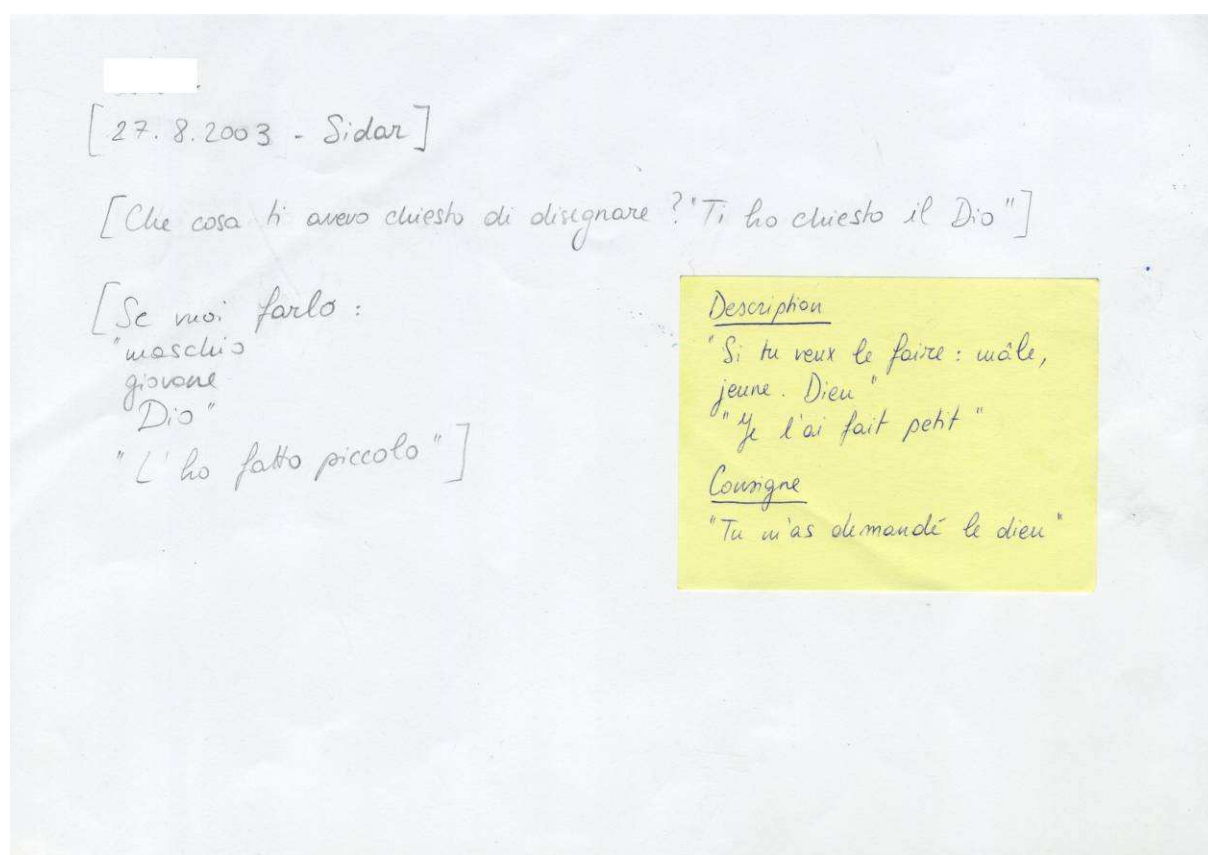 [27.8.2003 - Sidar]
[Che cosa ti avevo chiesto di disegnare? "Ti ho chiesto il Dio"]
[Se vuoi farlo:
"maschio
giovane
Dio"
"L'ho fatto piccolo"]
Description
"Si tu veux le faire : mâle,
jeune. Dieu"
"Je l'ai fait petit"
Consigne
"Tu m'as demandé le dieu"